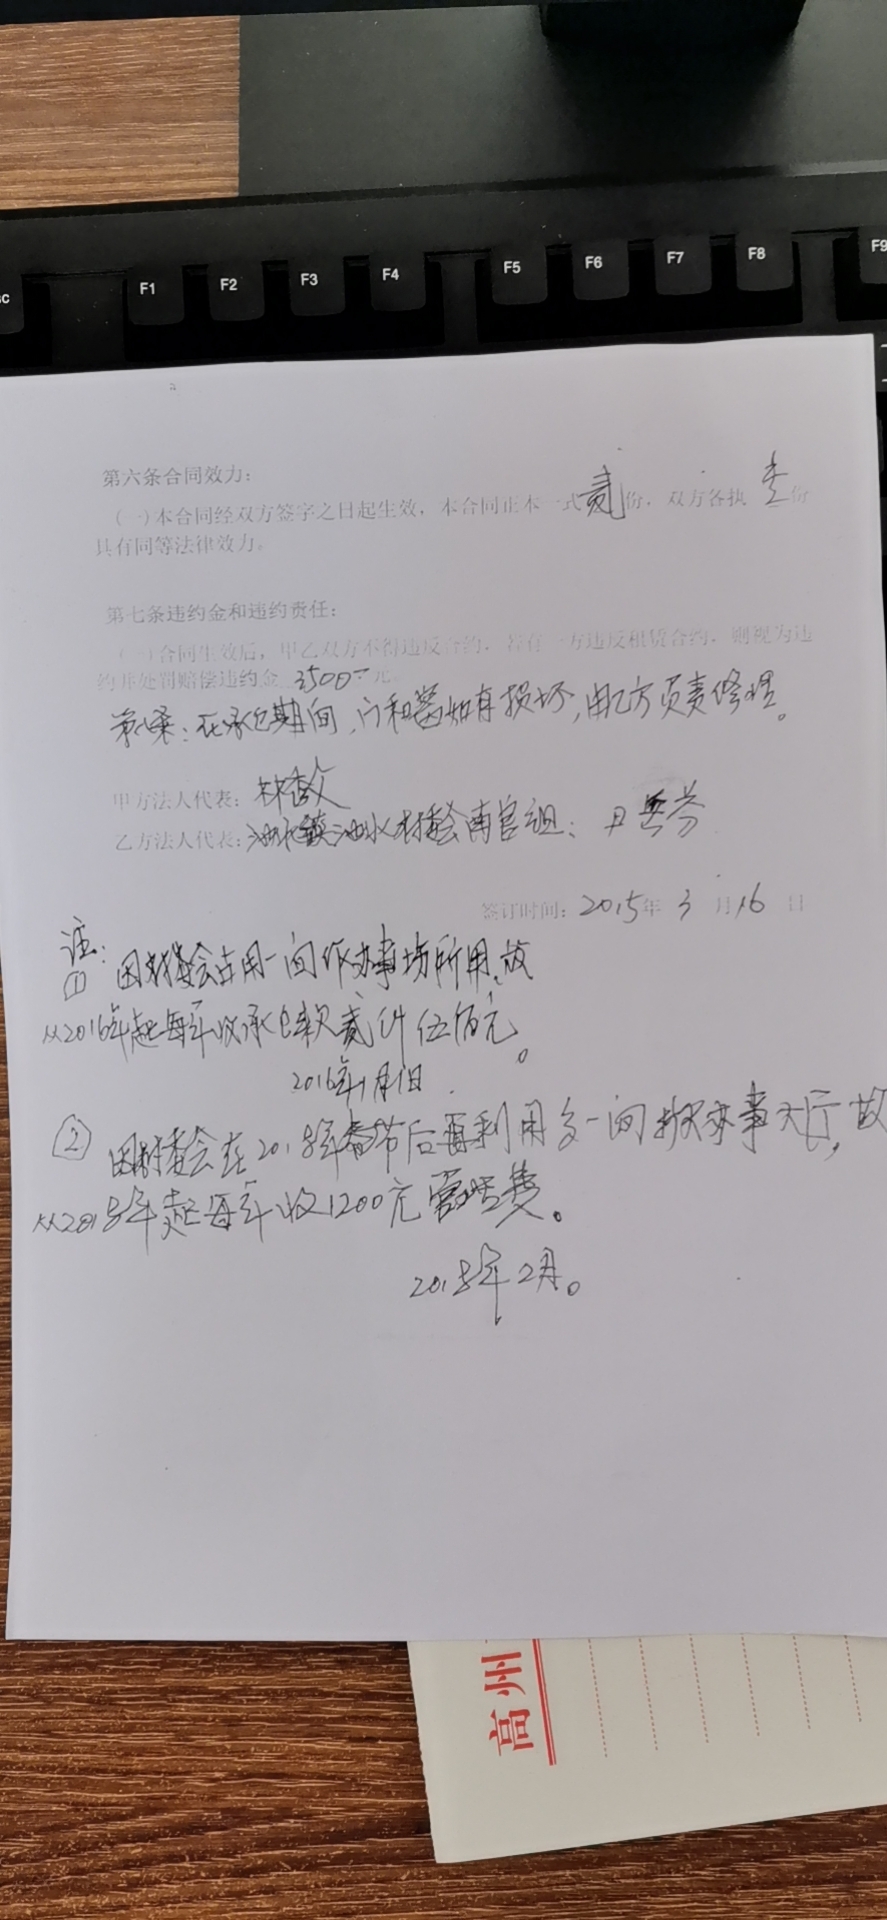 F1 F2 F3 F4 F5 F6 F7 F8 F9
第六条合同效力:
(一)本合同经双方签字之日起生效，本合同正本一式贰份，双方各执壹份
具有同等法律效力。
第七条违约金和违约责任:
(一)合同生效后，甲乙双方不得违反合约，若有一方违反租赁合约，则视为违
约并处罚赔偿违约金 3500 元。
第八条：在承包期间，门和窗如有损坏，由乙方负责修理。
甲方法人代表:
乙方法人代表: 村委会南官组：
签订时间: 2015年 3 月16 日
注:
① 因村委会占用一间作办事场所用，故
从2016年起每年收承包款贰仟伍佰元。
2016年1月1日
② 因村委会在2018年春节后再利用多一间扩办事大厅，故
从2018年起每年收1200元管理费。
2018年2月。
高州